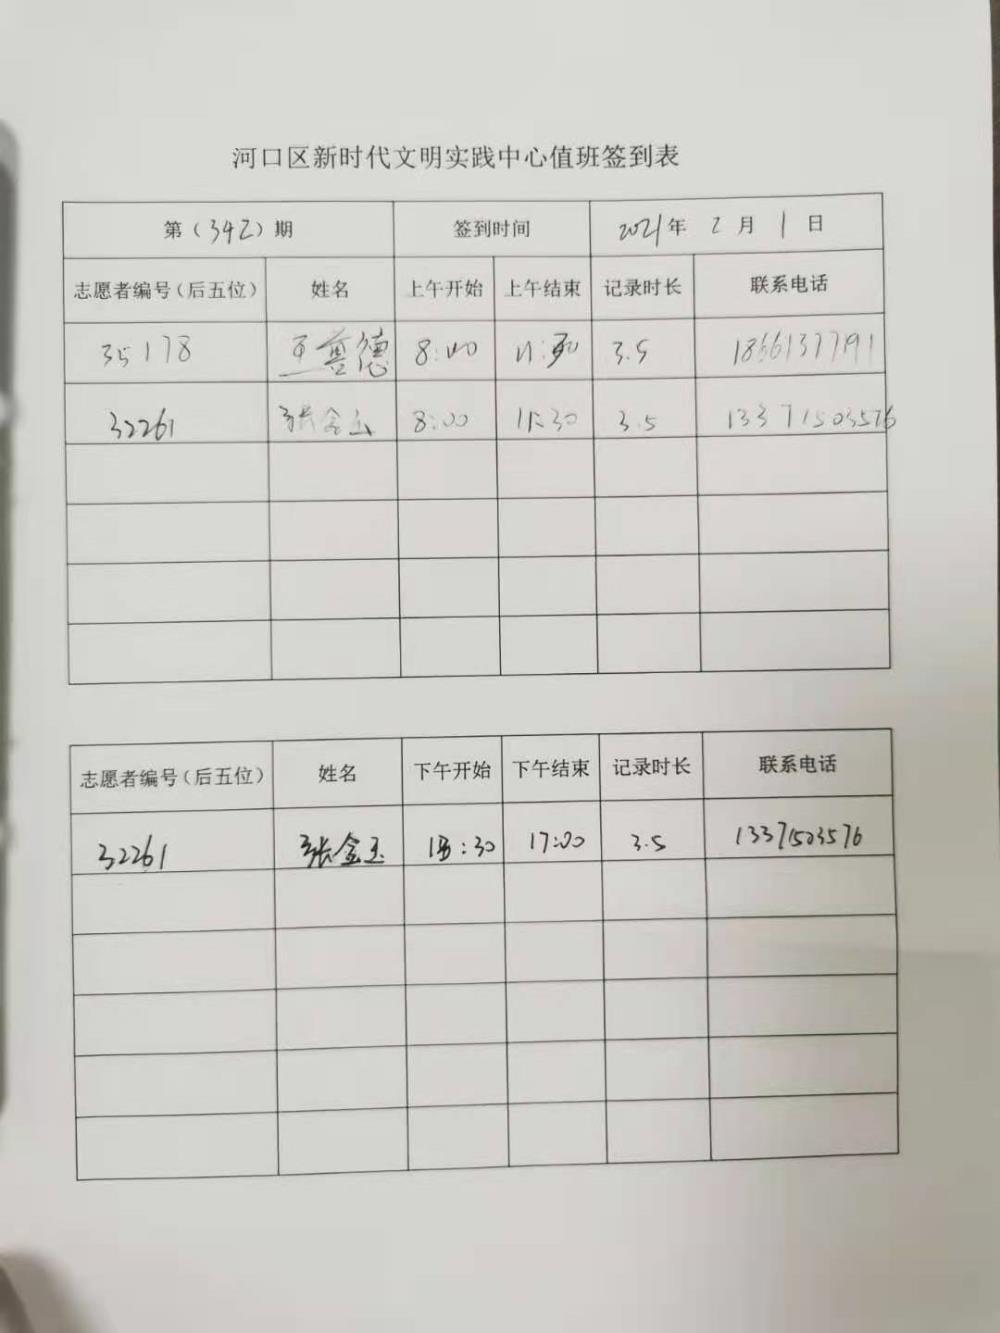 河口区新时代文明实践中心值班签到表
第（342）期 签到时间 2021年 2月 1日
志愿者编号（后五位） 姓名 上午开始 上午结束 记录时长 联系电话
35178 德 8:00 3.5 18661377191
32261 张金玉 8:00 11:30 3.5 13371503576
志愿者编号（后五位） 姓名 下午开始 下午结束 记录时长 联系电话
32261 张金玉 :30 17:00 3.5 13371503576